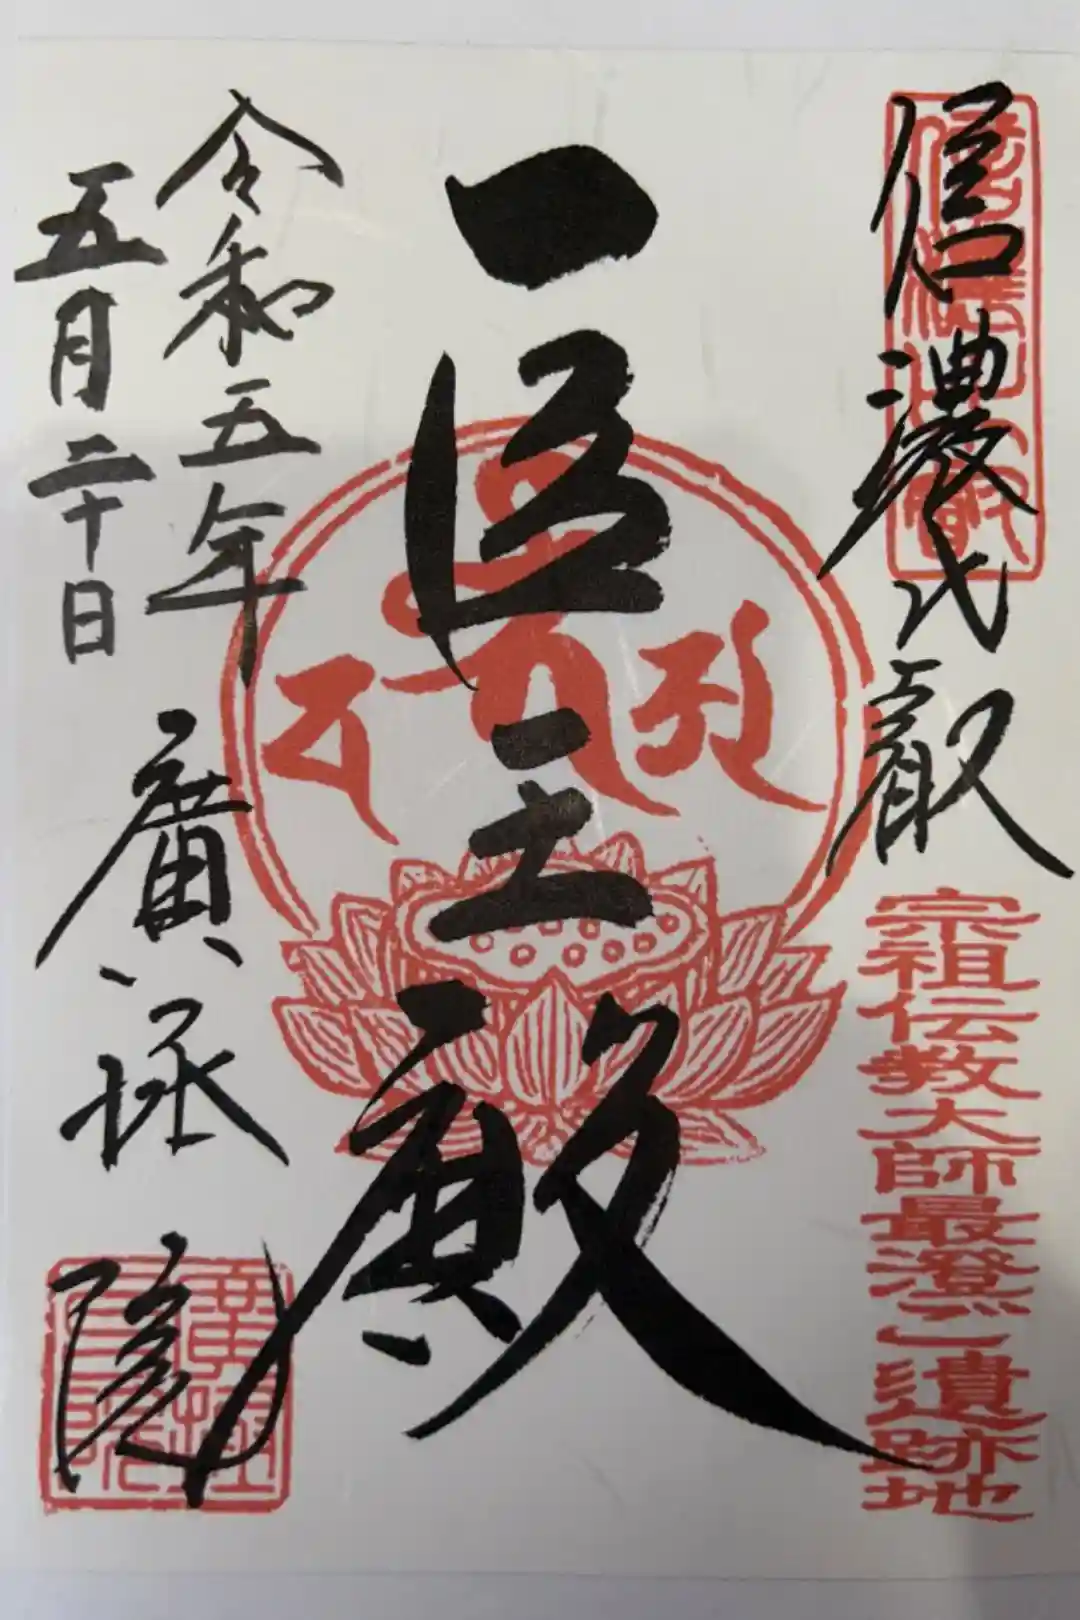 信濃比叡
宗祖伝教大師最澄ご遺跡地
医王殿
令和五年
五月二十日
廣拯院